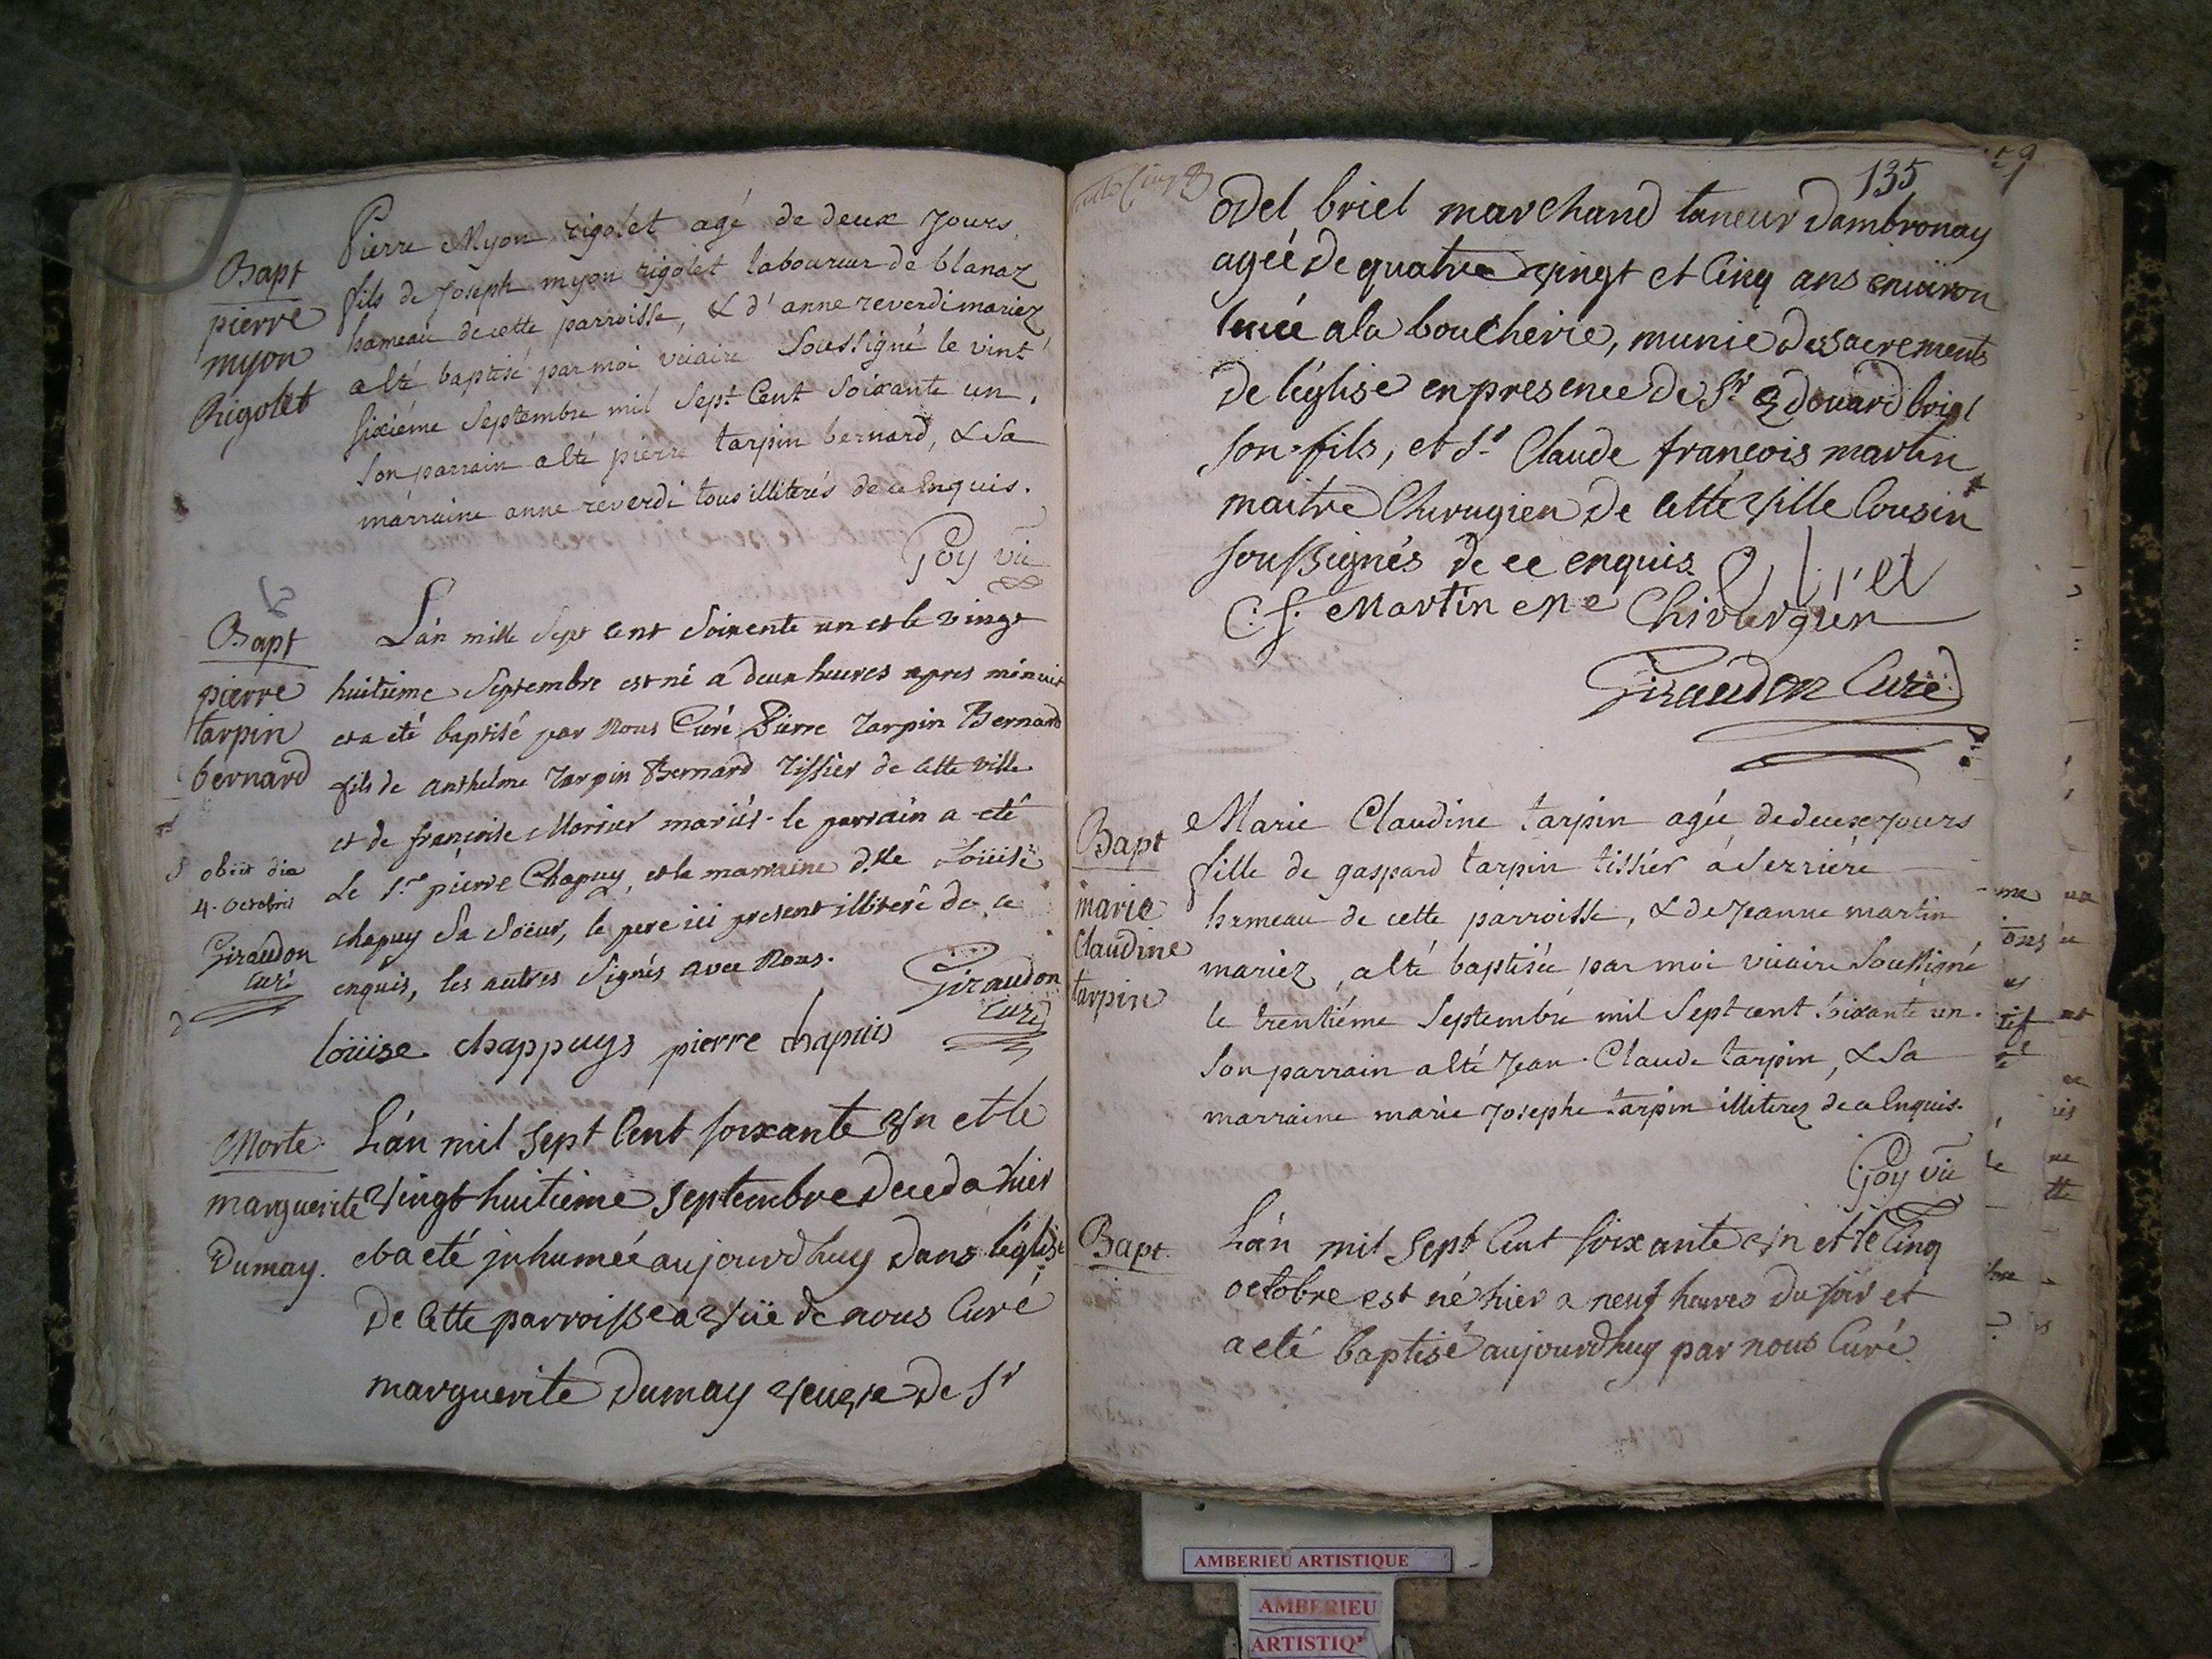 Bapt
pierre
myon
Rigolet
Pierre Myon rigolet agé de deux jours,
fils de Joseph myon rigolet laboureur de blanaz
hameau de cette parroisse, & d'anne reverdi mariez
a été baptisé par moi vicaire soussigné le vint
sixiéme septembre mil sept cent soixante un,
son parrain a été pierre tarpin bernard, & sa
marraine anne reverdi tous illiterés de ce enquis.
Goy vic
Bapt
pierre
tarpin
bernard
obiit die
4. octobris
Giraudon
curé
L'án mille sept cent soixente un et le vingt
huitième septembre est né a deux heures apres minuit
et a été baptisé par nous Curé Pierre tarpin Bernard
fils de anthelme tarpin Bernard tissier de cette ville
et de françoise Morier mariés. le parrain a eté
le Sr. pierre Chapuy, et la marraine dlle Loüise
chapuy sa soeur, le pere ici present illiteré de ce
enquis, les autres signés avec nous.
Giraudon
curé
loüise chappuys pierre chapuis
Morte
marguerite
Dumay.
L'án mil sept cent soixante vn et le
vingt huitieme septembre deceda hier
et a eté jnhumée aujourdhuy dans l'église
de cette parroisse a vüe de nous Curé
marguerite Dumay veuve de Sr
135
odel briel marchand taneur dambronay
agée de quatre vingt et cinq ans environ
a la boucherie, munie des sacrements
de l'église en presence de Sr Edouard briel
son fils, et Sr. Claude francois martin
maitre chirugien de cette ville cousin
soussignés de ce enquis.
C. f. Martin me Chirurgien
Giraudon Curé
Bapt
marie
claudine
tarpin
Marie Claudine tarpin agée de deux jours
fille de gaspard tarpin tissier á serriere
hameau de cette parroisse, & de jeanne martin
mariez, a été baptisée par moi vicaire soussigné
le trentiéme septembre mil sept cent soixante un.
son parrain a été jean Claude tarpin, & sa
marraine marie josephe tarpin illiterez de ce enquis.
Goy vic
Bapt.
L'án mil sept cent soixante vn et le cinq
octobre est né hier a neuf heures du soir et
a eté baptisé aujourdhuy par nous Curé
AMBERIEU ARTISTIQUE
AMBERIEU
ARTISTIQ